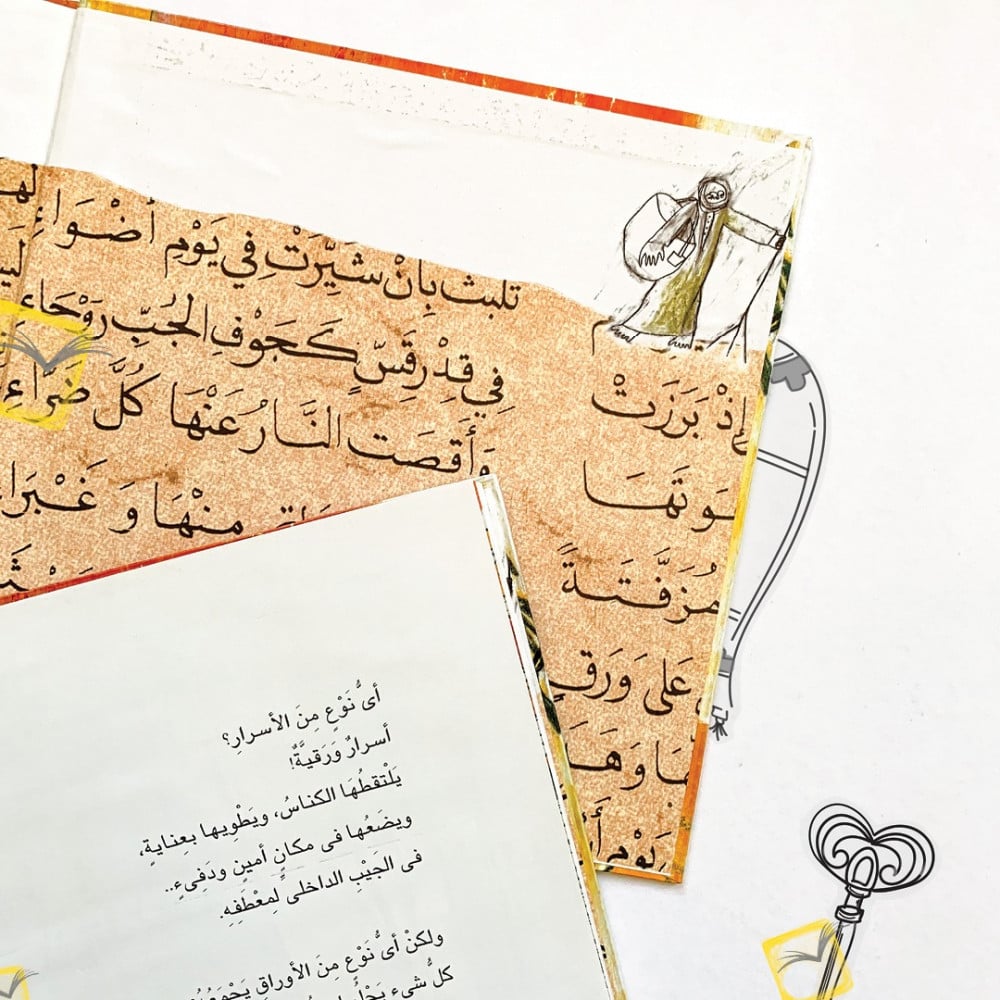 تلبث بِانْ شيِّرَتْ فِي يَوْمِ أضْوَاءِ
فِي قدْرِ قَسٍّ كَجَوْفِ الجُبِّ رَوْحَاءِ
وَأَقصَت النَّارُ عَنْهَا كُلَّ ضَرَاءِ
مِنْهَا وَ غَبْرَا
إِذْ بَرَزَتْ
مُزَفَّتَةً
عَلى وَرَقٍ
يَوْم
أىُّ نَوْعٍ مِنَ الأسرارِ؟
أسرارٌ وَرَقيةٌ!
يَلْتقطُهَا الكناسُ، ويَطْوِيها بعِنايةٍ،
ويضَعُها فى مكانٍ أمينٍ ودَفِىءٍ..
فى الجَيْبِ الداخلى لِمِعْطَفِهِ.
ولكنْ أىُّ نَوْعٍ مِنَ الأوراقِ يَجْمَعُ
كلُّ شىءٍ